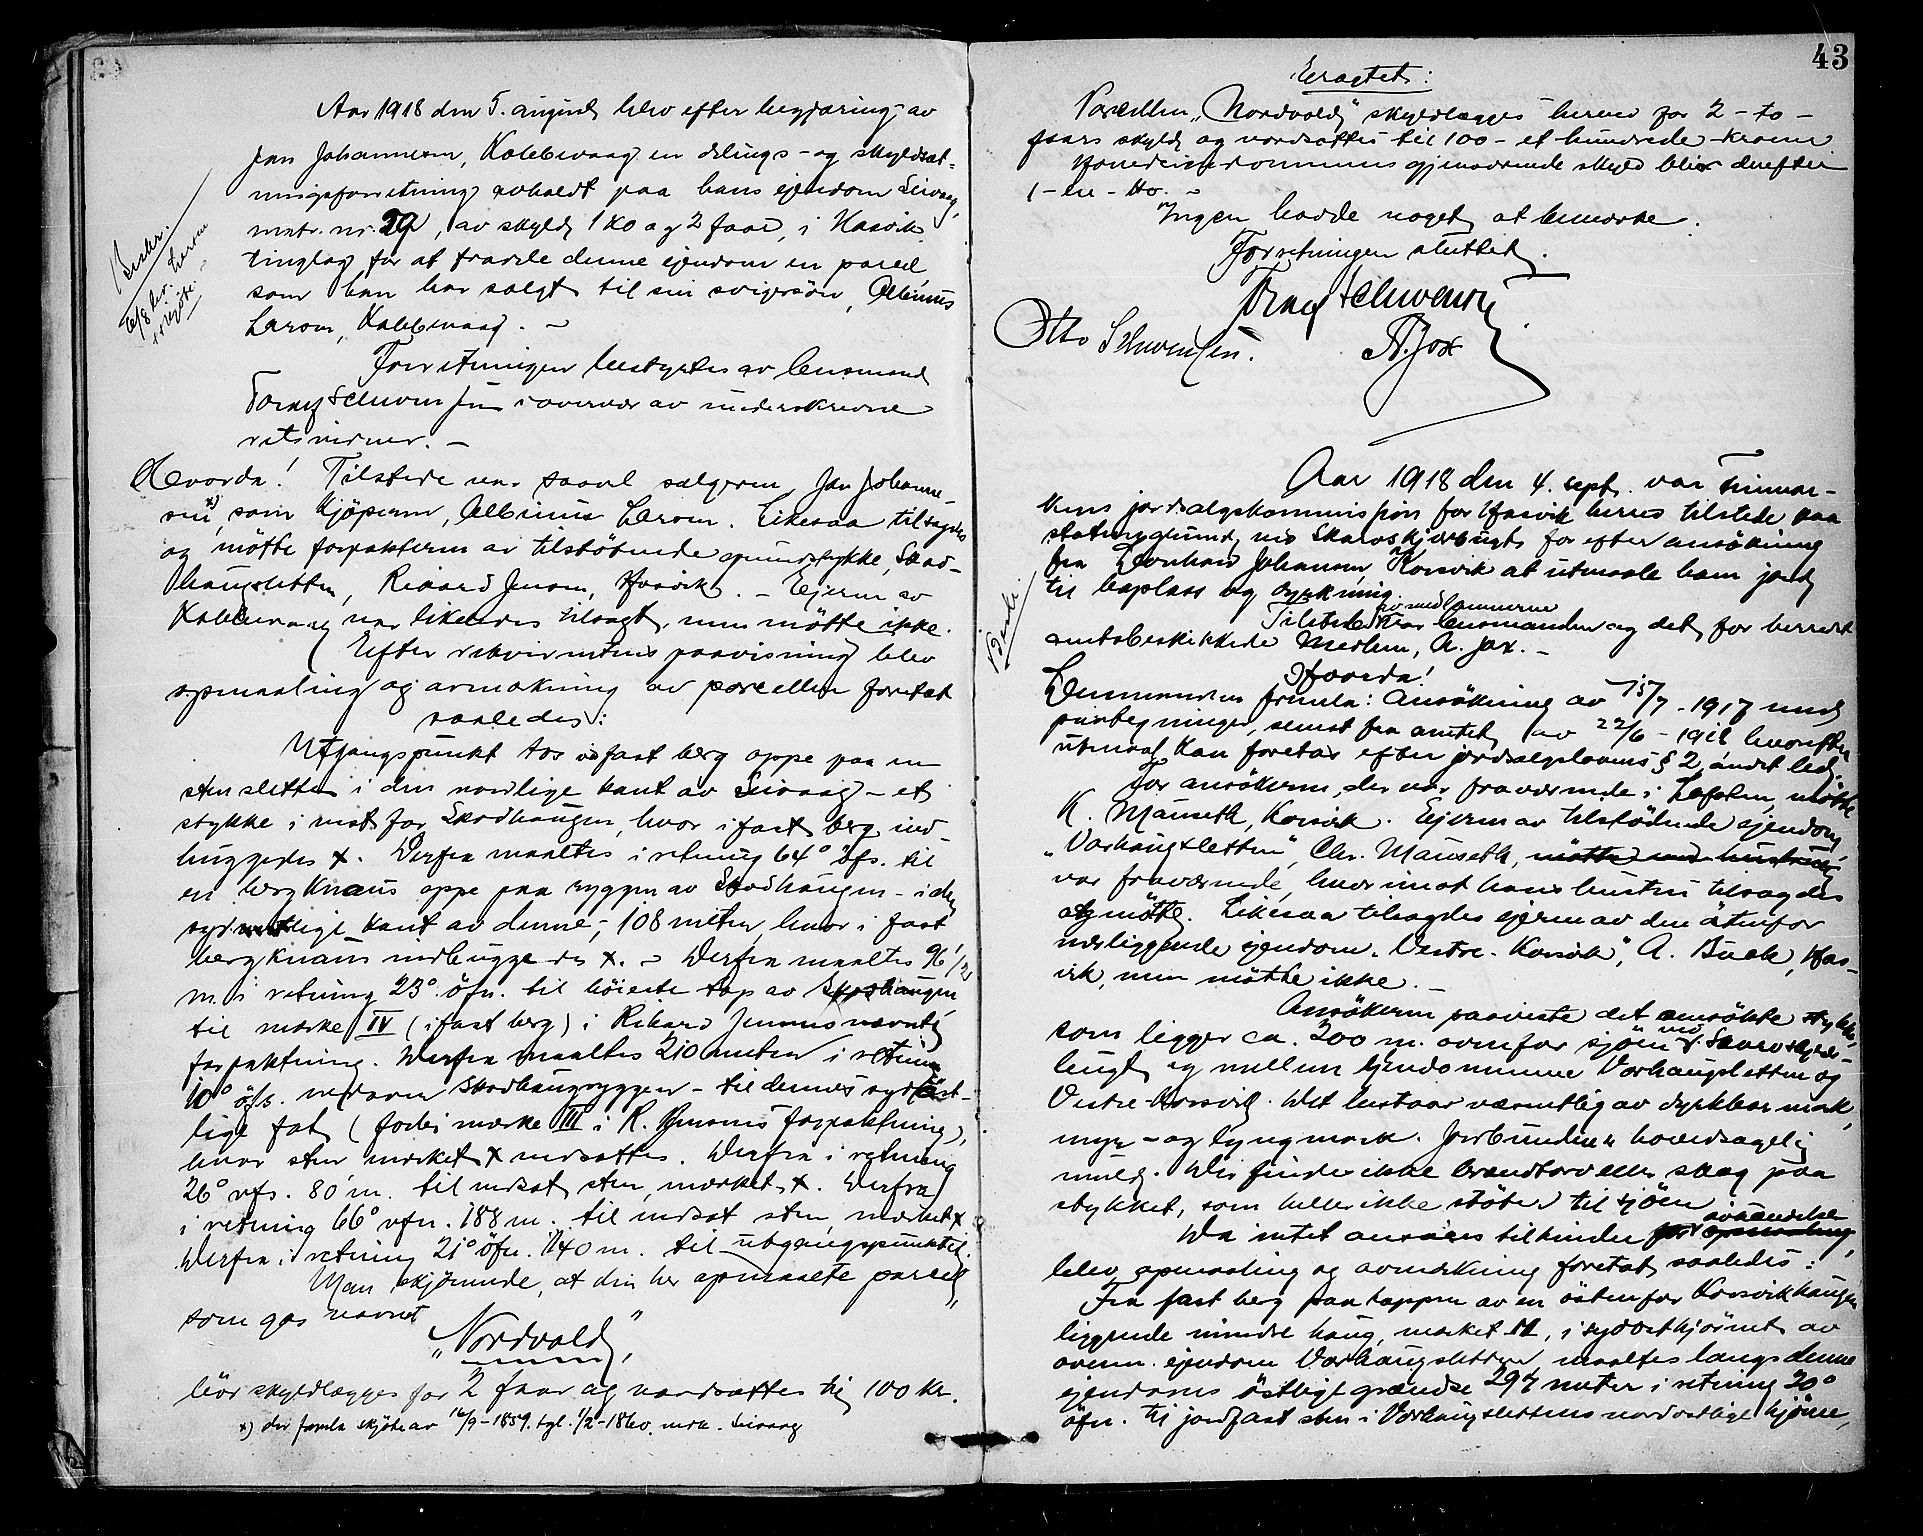 Aar 1918 den 5. august blev efter begjæring av
Jan Johannesen, Kobbevaag en delings- og skyldsæt-
ningsforretning avholdt paa hans eiendom Seivaag,
matr. nr. 29, av skyld 1 ko og 2 faar, i Hasvik
tinglag for at fradele denne ejendom en parcel
som han har solgt til sin svigersön, Albinus
Larsen, Kobbevaag. -
Forretningen bestyrtes av lensmand
i overvær av underskrevne
retsvidner. -
Hvorda! Tilstede var saavel sælgeren, Jan Johanne-
sen x), som kjöperen, Albinus Larsen. Likesaa tilsagdes
og mötte forpakteren av tilstötende grundstykke, Skod-
haugsletten, Rikard Jensen, Hasvik. - Ejeren av
Kobbevaag var likeledes tilsagt, men mötte ikke.
Efter rekvirentens paavisning blev
opmaaling og avmerkning av parcellen foretat
saaledes:
Utgangspunkt tos i fast berg oppe paa en
stenslette i den nordlige kant av Seivaag - et
stykke i vest for Skodhaugen, hvor i fast berg ind-
hugges x. Derfra maaltes i retning 64° öfs. til
en bergknaus oppe paa ryggen av Skodhaugen - i den
sydvestlige kant av denne, 108 meter, hvor i fast
bergknaus indhugges x. - Derfra maaltes 96 1/2
m. i retning 23° öfn. til höieste top av Skodhaugen
til merke IV (i fast berg) i Rikard Jensens nævnte
forpaktning. Derfra maaltes 210 meter i retning
10° öfs. nedover Skodhaugryggen - til dennes sydöst-
lige fot (forbi merke III i R. Jensens forpaktning),
hvor sten merket x nedsattes. Derfra i retning
26° vfs. 80 m. til nedsat sten, merket x. Derfra
i retning 66° vfn. 188 m. til nedsat sten, merket x
Derfra i retning 21° öfn. 140 m. til utgangspunktet.
Man skjönnede, at den her opmaalte parcel
som gis navnet
"Nordvold",
bör skyldlægges for 2 faar og værdsættes til 100 kr.
x) der fremla skjöte av 16/9-1859, tgl. 1/2-1860, merk. Seivaag
43
Eragtet:
Parcellen "Nordvold" skyldlægges herved for 2 - to -
faars skyld og værdsættes til 100 - et hundrede - kroner.
Hovedeiendommens gjenværende skyld blir derefter
1 - en - ko. -
Ingen hadde noget at bemerke.
Forretningen sluttet.
Otto Schwensen. A. Jox
Aar 1918 den 4. sept. var Finmar-
kens jordsalgskommission for Hasvik herred tilstede paa
statens grund ved Skarvskjærbugt for efter ansökning
fra Leonhard Johansen, Korsvik at utmaale ham jord
til boplass og dyrkning.
Tilstede av medlemmerne var lensmanden og det for herredet
amtsbeskikkede medlem, A. Jox. -
Hvorda!
Lensmanden fremla: Ansökning av 15/7 - 1917 med
paategninger, senest fra amtet av 22/6 - 1918 hvorefter
utmaal kan foretas efter jordsalgslovens § 2, andet led.
For ansökeren, der var fraværende i Lofoten, mötte
K. Mauseth, Korsvik. Ejeren av tilstödende ejendom
"Vorhaugsletten", Chr. Mauseth,
var fraværende, hvorimot hans hustru tilsagdes
og mötte. Likesaa tilsagdes ejeren av den östenfor
nærliggende ejendom "Vestre-Korsvik", A. Buck, Has-
vik, men mötte ikke. -
Ansökeren paaviste det ansökte stykke,
som ligger ca. 200 m. ovenfor sjöen ved Skarvskjær-
bugt og mellem ejendommene Vorhaugsletten og
Vestre-Korsvik. Det bestaar væsentlig av dyrkbar mark,
myr- og lyngmark. Jordbunden er hovedsagelig
muld. Der findes ikke brændtorv eller skog paa
stykket, som heller ikke stöter til sjöen.
Da intet ansaaes til hinder for avhændelse
blev opmaaling og avmerkning foretat saaledes:
Fra fast berg paa toppen av en östenfor Korsvikhaugen
liggende mindre haug, merket II, i sydösthjörnet av
ovenn. ejendom Vorhaugsletten, maaltes langs denne
ejendoms östlige grændse 297 meter i retning 20°
öfn. til jordfast sten i Vorhaugslettens nordostlige hjörne,